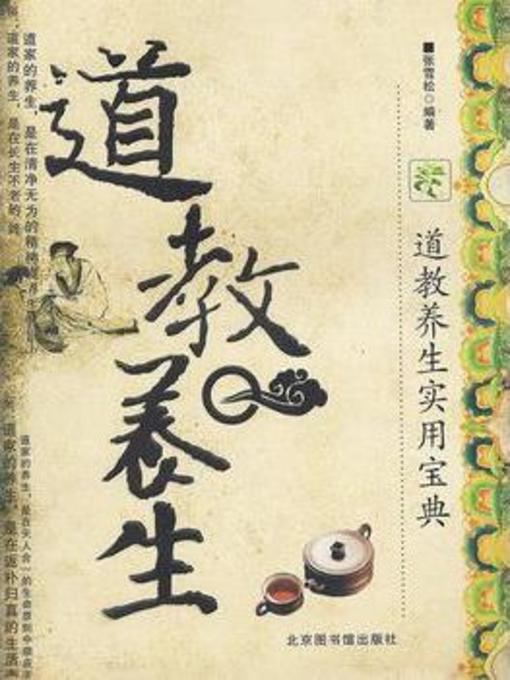 道教养生
■张雪松·编著
道教养生实用宝典
北京图书馆出版社
道家的养生，是在清净无为的精神
道家的养生，是在长生不老的
道家的养生，是在天人合一的生命原则中
道家的养生，是在返朴归真的生活